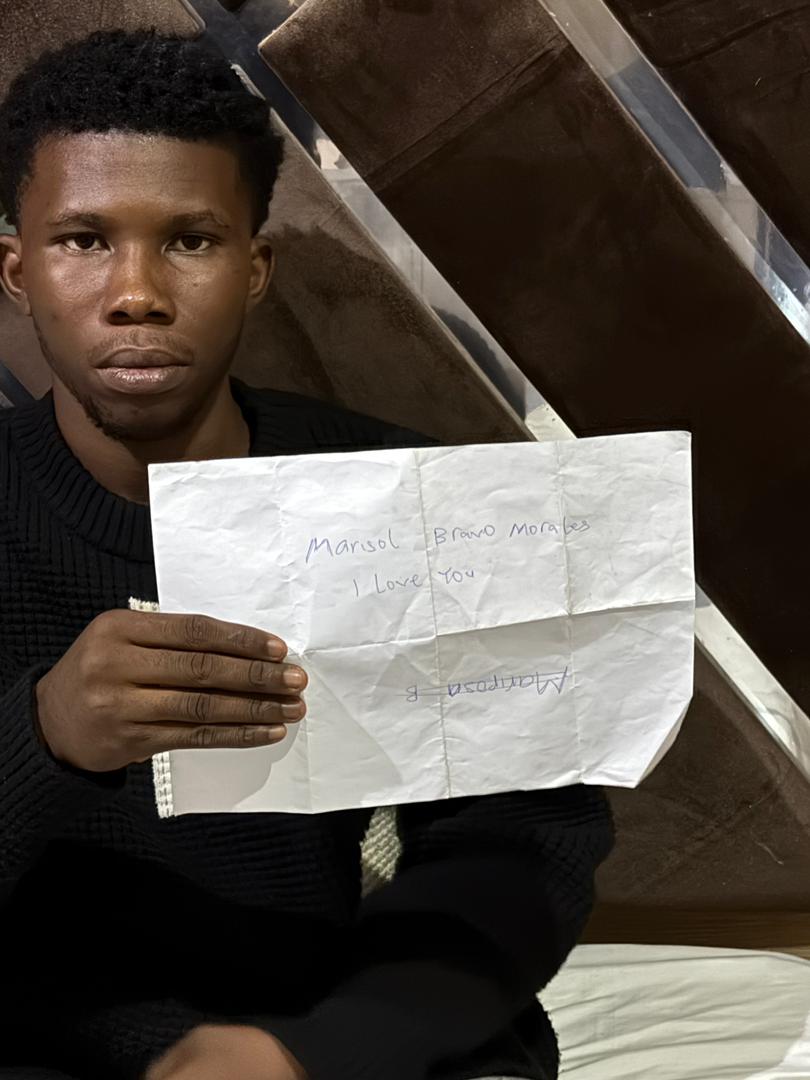 Marisol Bravo Morales
I Love You
Mariposa B